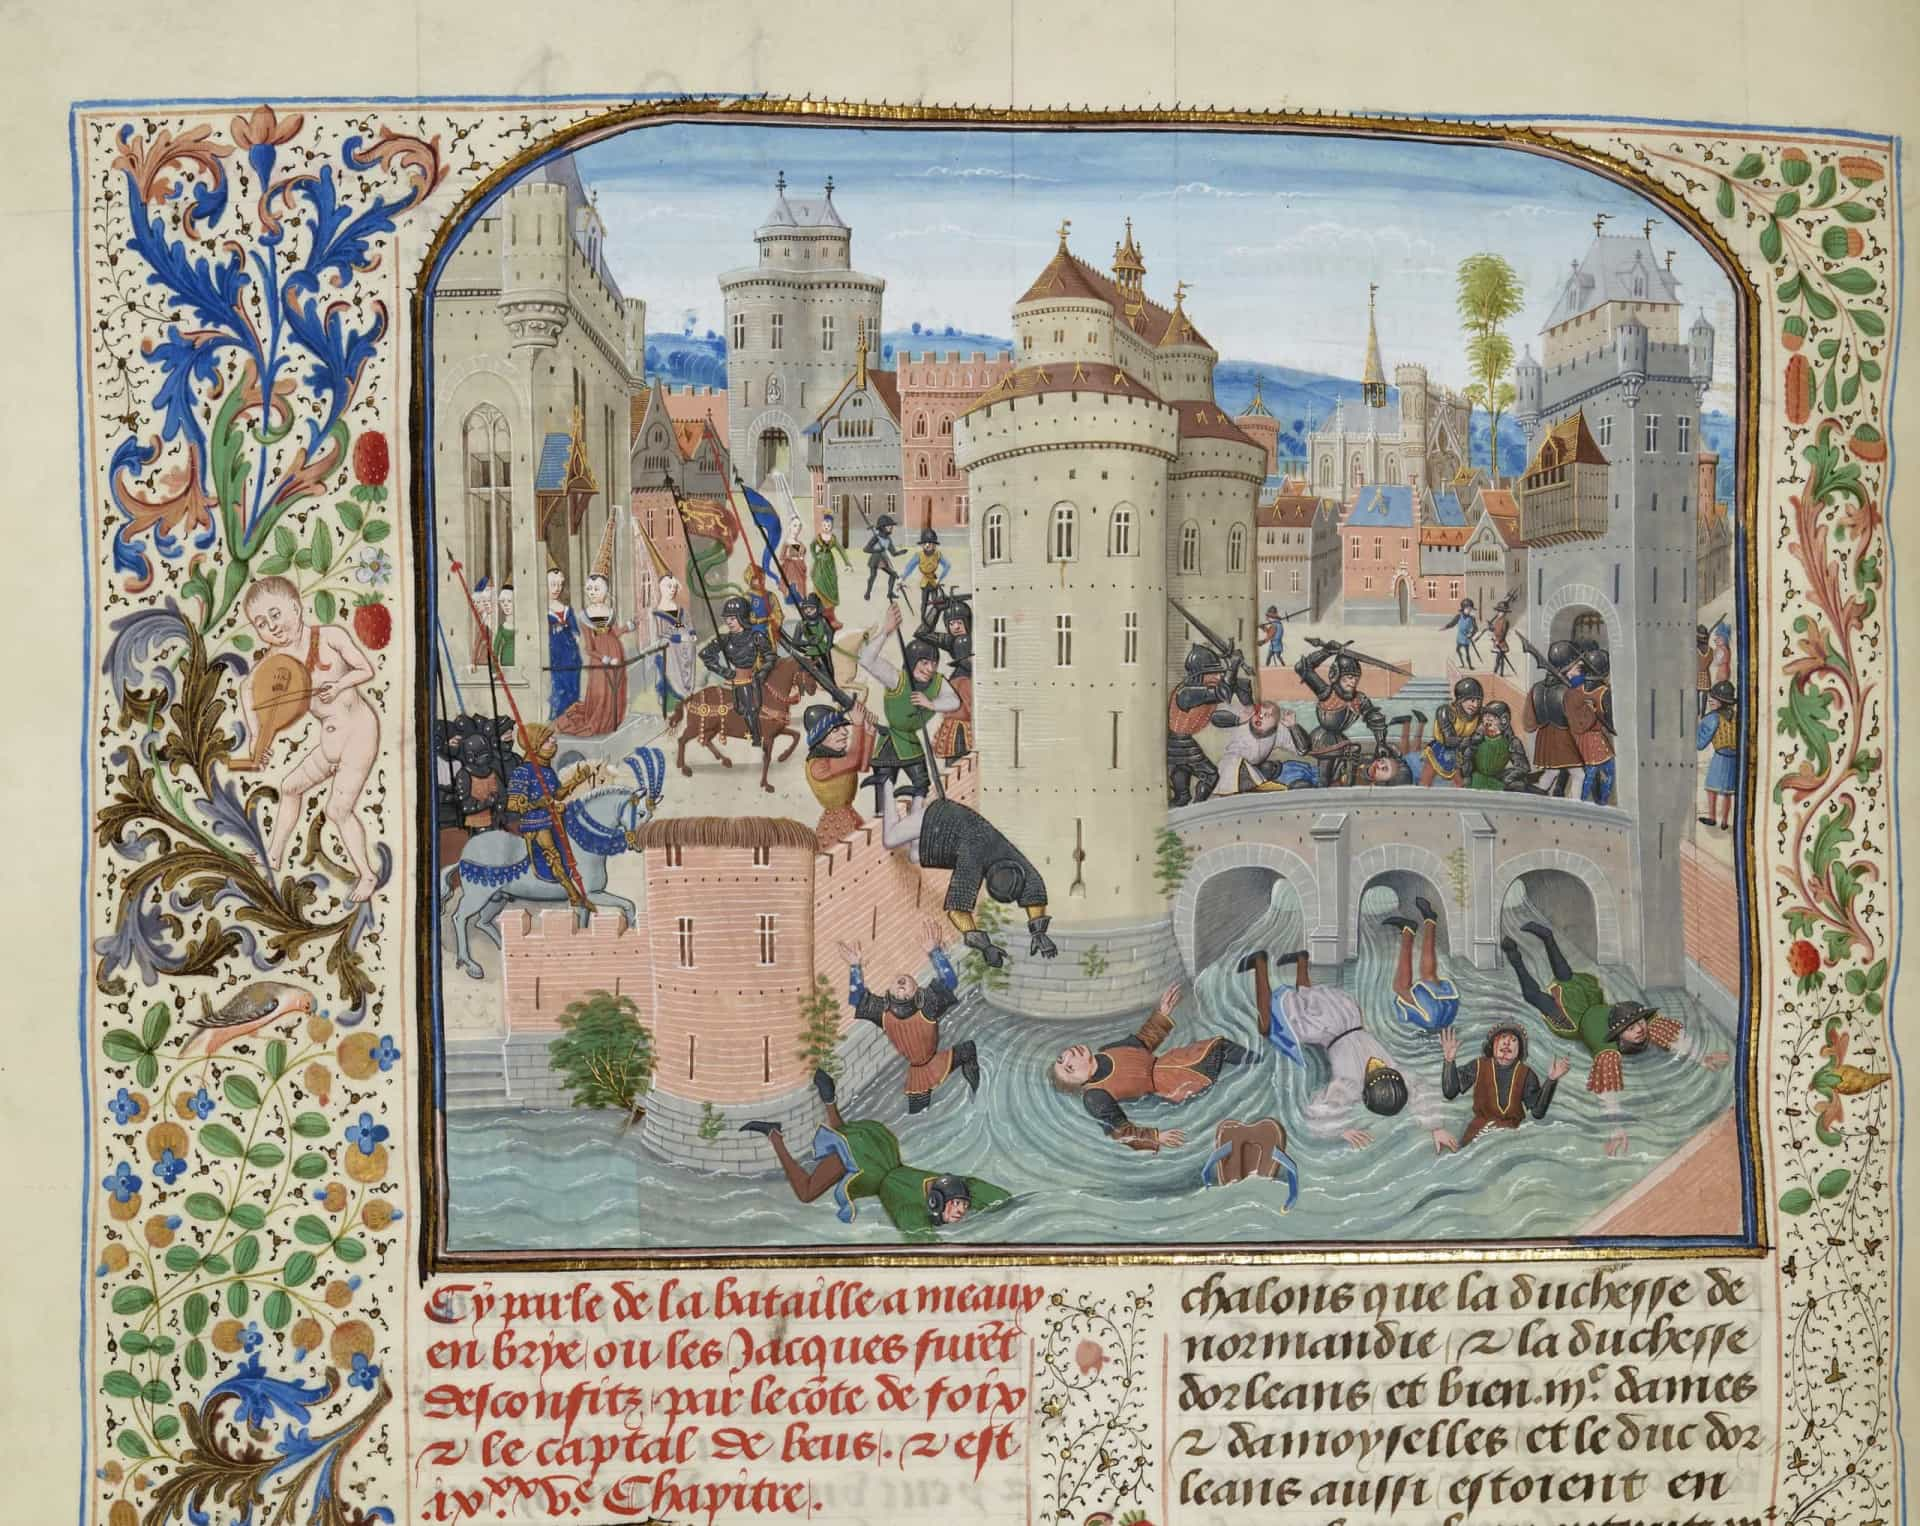 Cy parle de la bataille a meaux
en brye ou les Jacques furēt
desconfitz par le cōte de foix
⁊ le captal de beus. ⁊ est
.ixˣˣ.vᵉ. Chapitre.
chalons que la duchesse de
normandie ⁊ la duchesse
dorleans et bien .iijᶜ. dames
⁊ damoyselles et le duc dor
leans aussi estoient en